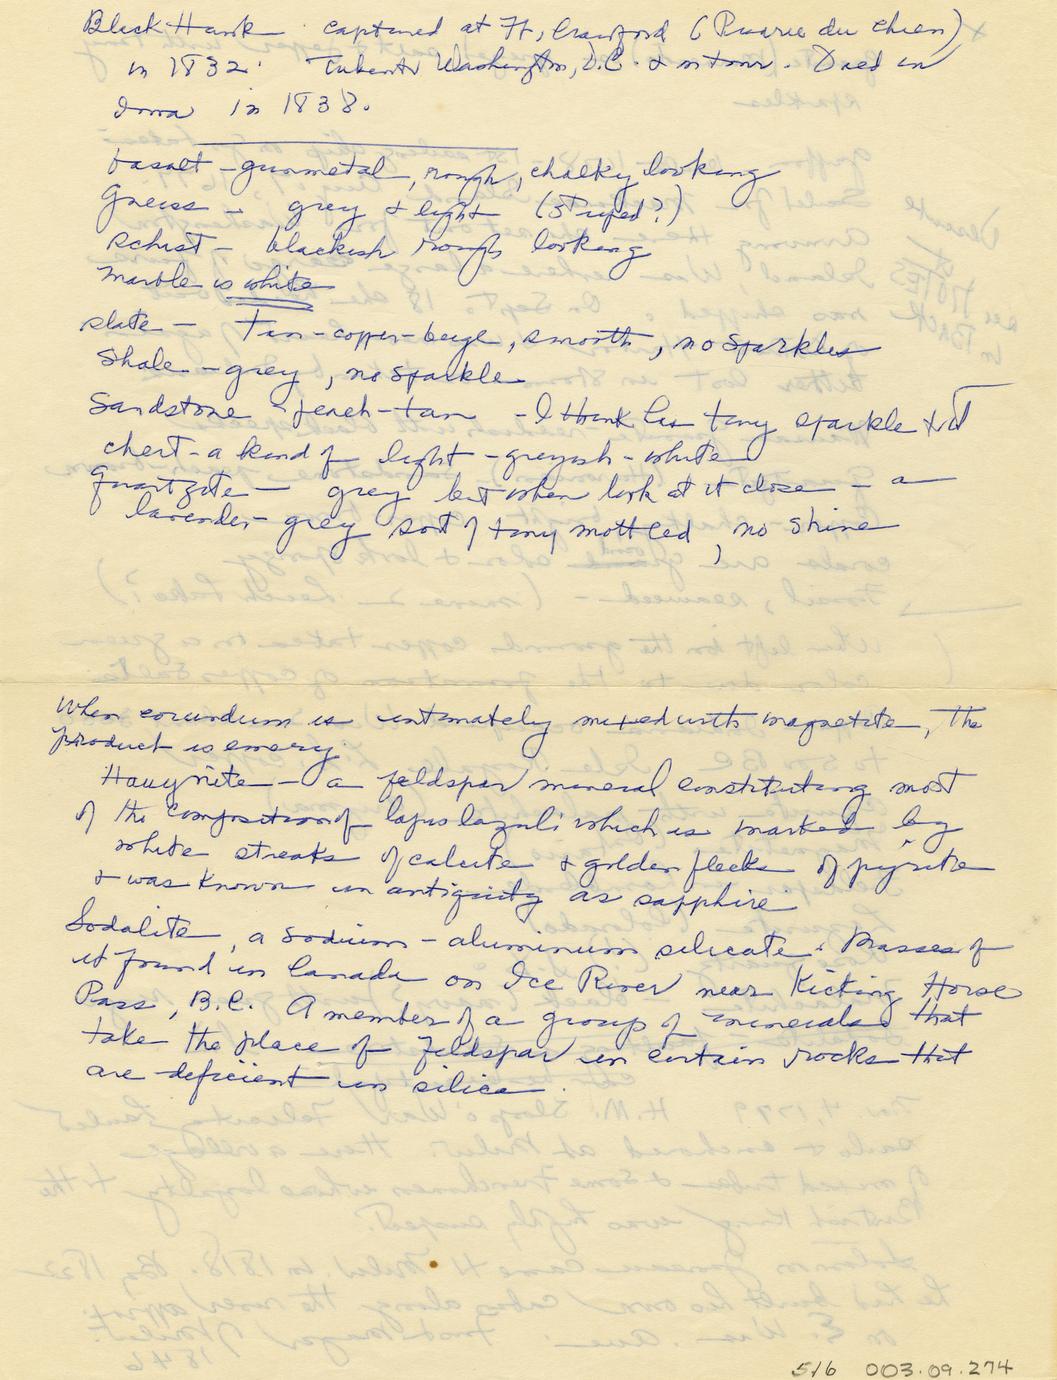 Black Hawk captured at Ft. Crawford (Prairie du Chien)
in 1832. Taken to Washington, D.C. & on tour. Died in
Iowa in 1838.
basalt - gunmetal, rough, chalky looking
Gneiss - grey & light (striped?)
Schist - blackish rough looking
marble is white
slate - Tan-copper-beige, smooth, no sparkles
Shale - grey, no sparkle
Sandstone - peach-tan - I think has tiny sparkle
chert - a kind of light - greyish - white
Quartzite - grey but when look at it close - a
lavender-grey sort of tiny mottled, no shine
When corundum is intimately mixed with magnetite, the
product is emery.
Hauynite - a feldspar mineral constituting most
of the composition of lapis lazuli which is marked by
white streaks of calcite & golden flecks of pyrite
& was known in antiquity as sapphire
Sodalite, a sodium - aluminum silicate. Masses of
it found in Canada on Ice River near Kicking Horse
Pass, B.C. A member of a group of minerals that
take the place of feldspar in certain rocks that
are deficient in silica.
5/6 003.09.274